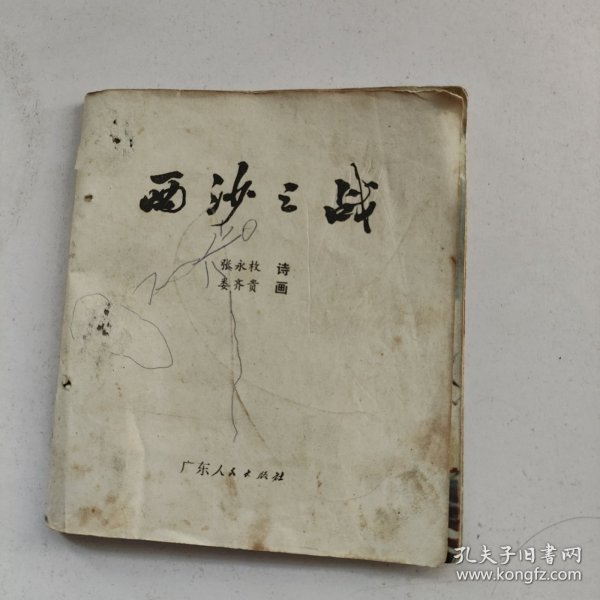 西沙之战
张永枚 诗
娄齐贵 画
广东人民出版社
孔夫子旧书网
www.kongfz.com